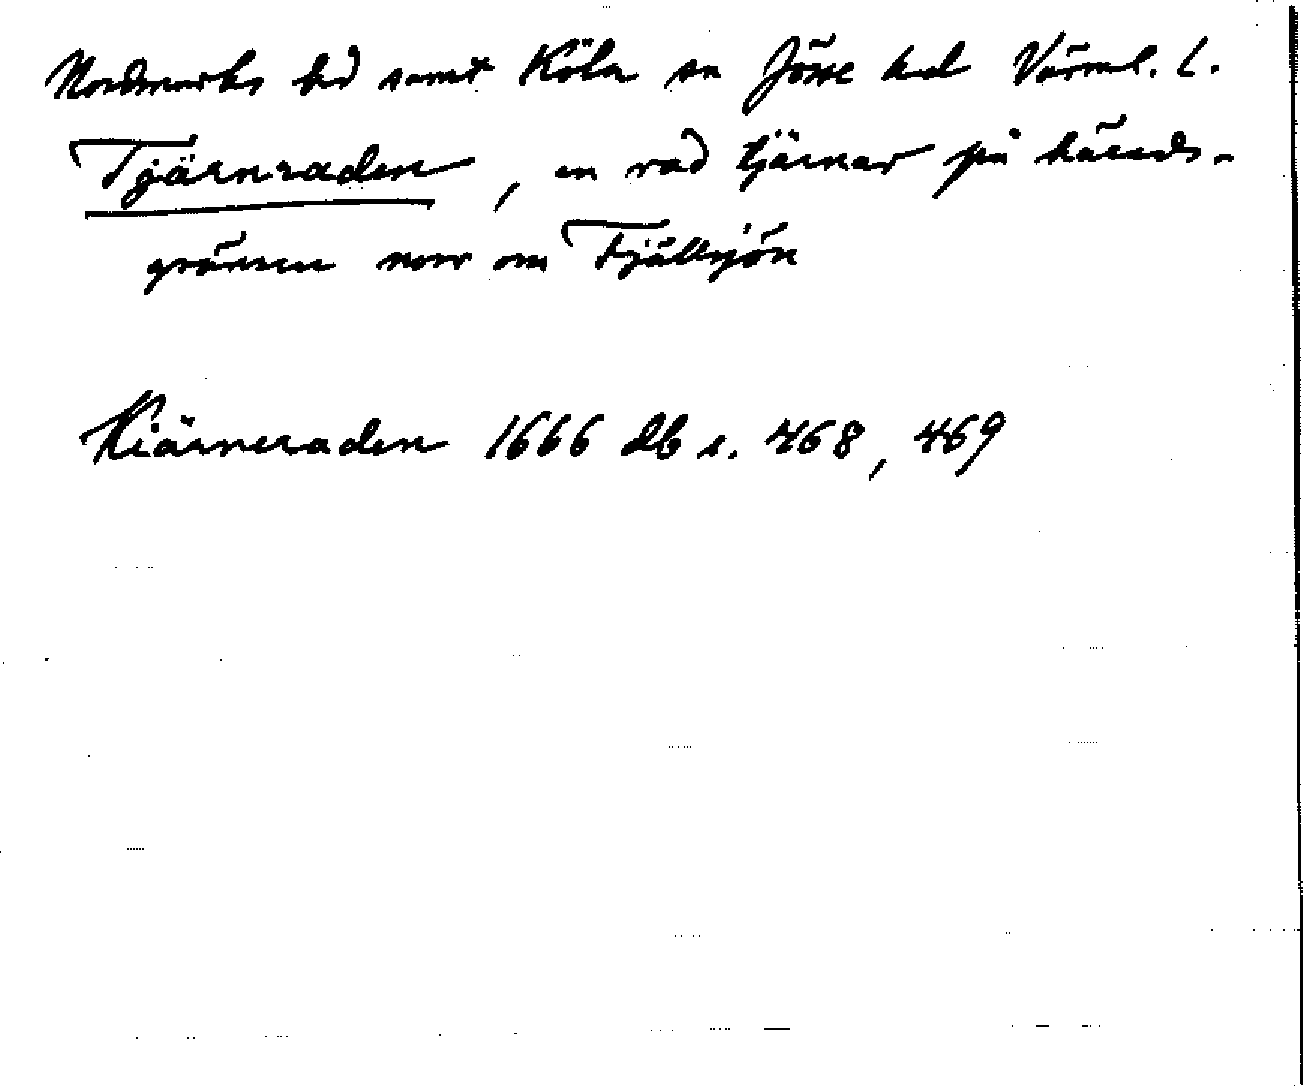 Nordmarks hd samt Köla sn Jösse hd Värml. l.
Tjärnraden, en rad tjärnar på härads-
gränsen norr om Fjällsjön
Kiärneraden 1666 db s. 468, 469